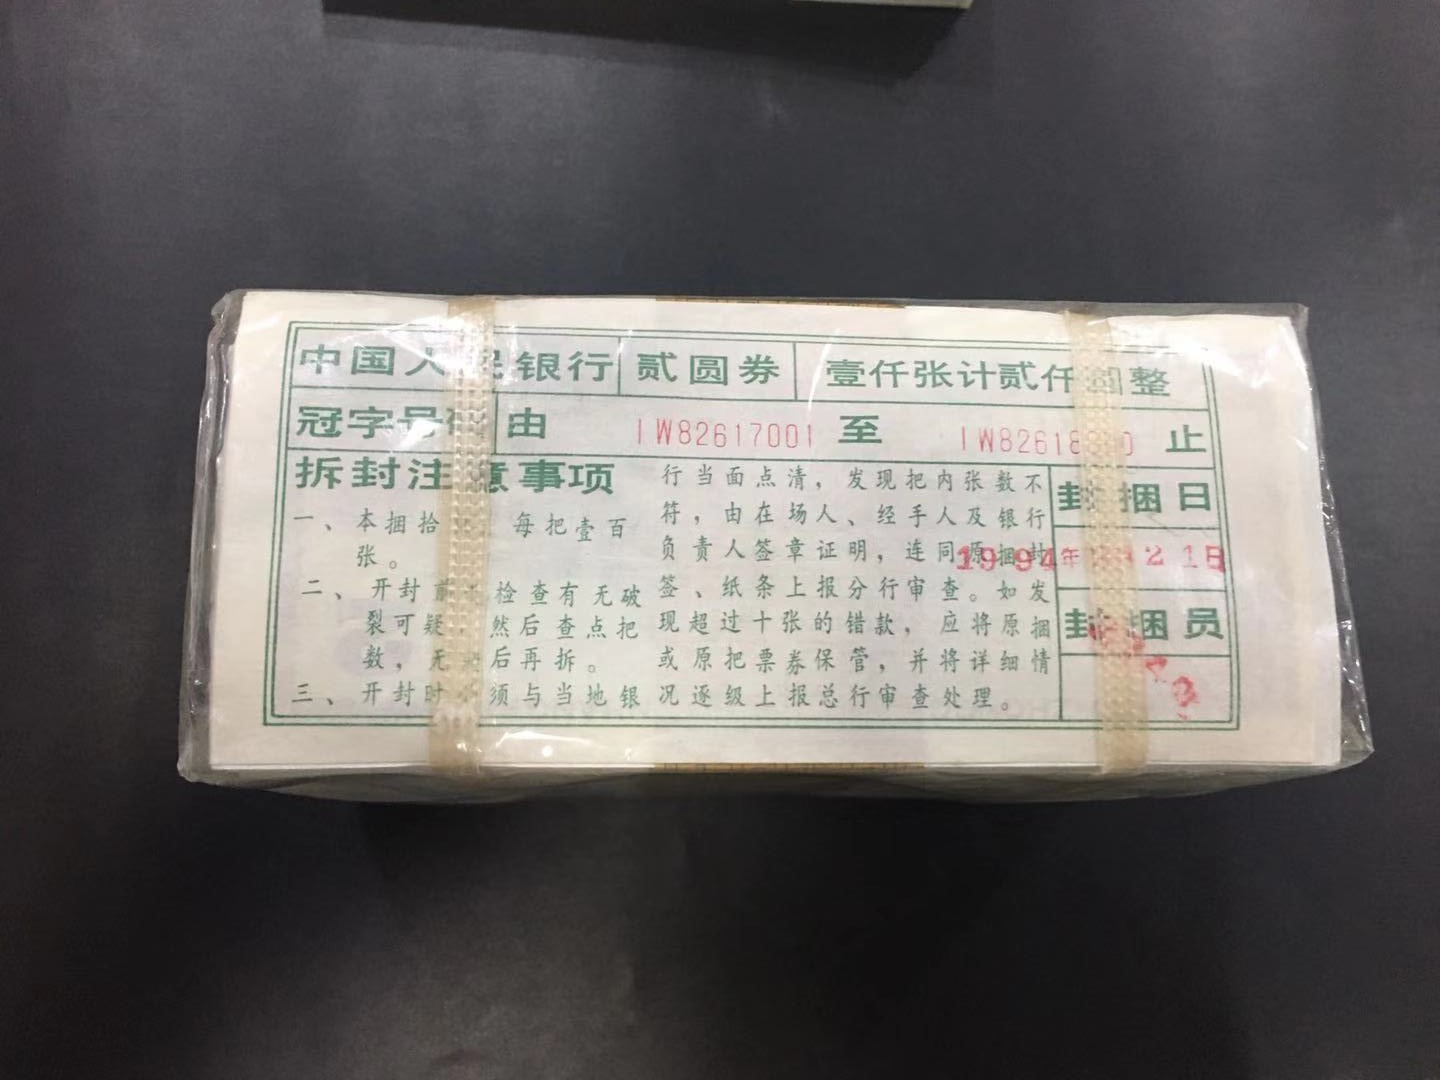 中国人民银行 贰圆券 壹仟张计贰仟圆整
冠字号码 由 IW82617001 至 IW82618 0 止
拆封注意事项
一、本捆拾 每把壹百
张。
二、开封前 检查有无破
裂可疑, 然后查点把
数,无 后再拆。
三、开封时 须与当地银
行当面点清,发现把内张数不
符,由在场人、经手人及银行
负责人签章证明,连同原捆封
签、纸条上报分行审查。如发
现超过十张的错款,应将原捆
或原把票券保管,并将详细情
况逐级上报总行审查处理。
封捆日
1994年 21日
封捆员